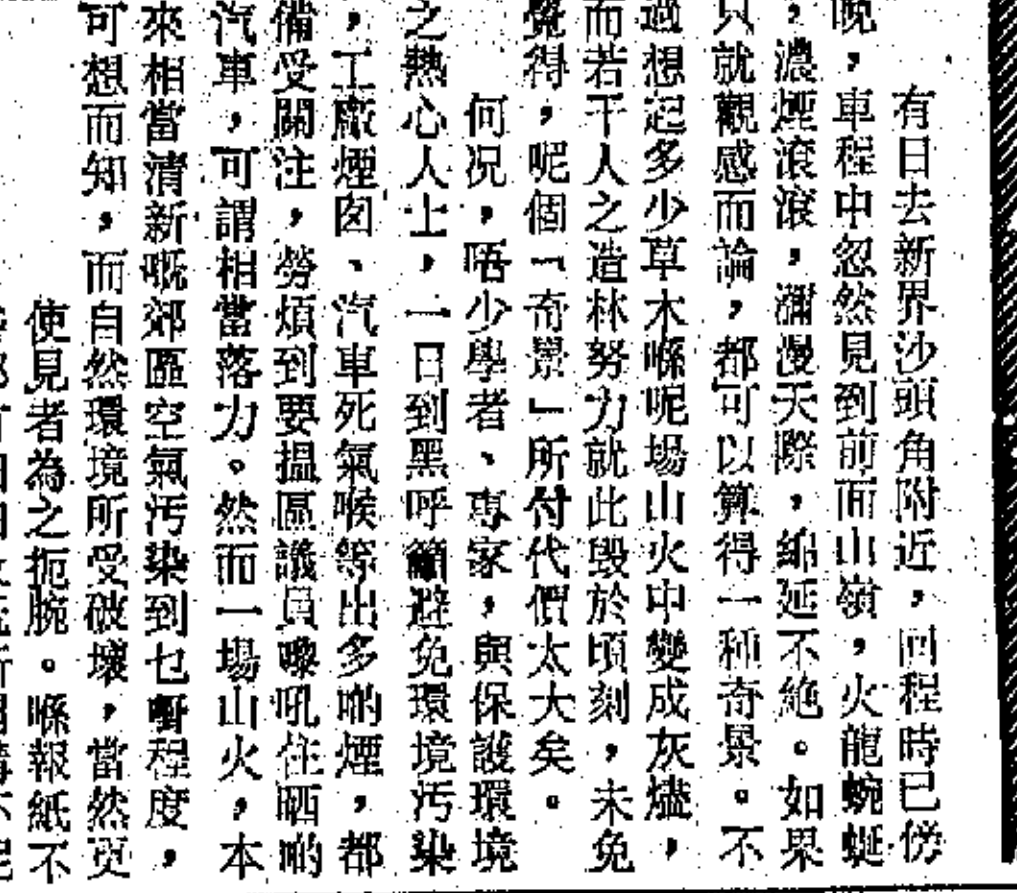 有日去新界沙頭角附近，回程時已傍
晚，車程中忽然見到前面山嶺，火龍蜿蜒
，濃煙滾滾，瀰漫天際，綿延不絶。如果
只就觀感而論，都可以算得一種奇景。不
過想起多少草木喺呢場山火中變成灰燼，
而若干人之造林努力就此毀於頃刻，未免
覺得，呢個「奇景」所付代價太大矣。
何况，唔少學者、專家，與保護環境
之熱心人士，一日到黑呼籲避免環境汚染
，工廠煙囱、汽車死氣喉等出多啲煙，都
備受關注，勞煩到要搵區議員嚟吼住晒啲
汽車，可謂相當落力。然而一場山火，本
來相當清新嘅郊區空氣汚染到乜嘢程度，
可想而知，而自然環境所受破壞，當然更
使見者為之扼腕。喺報紙不